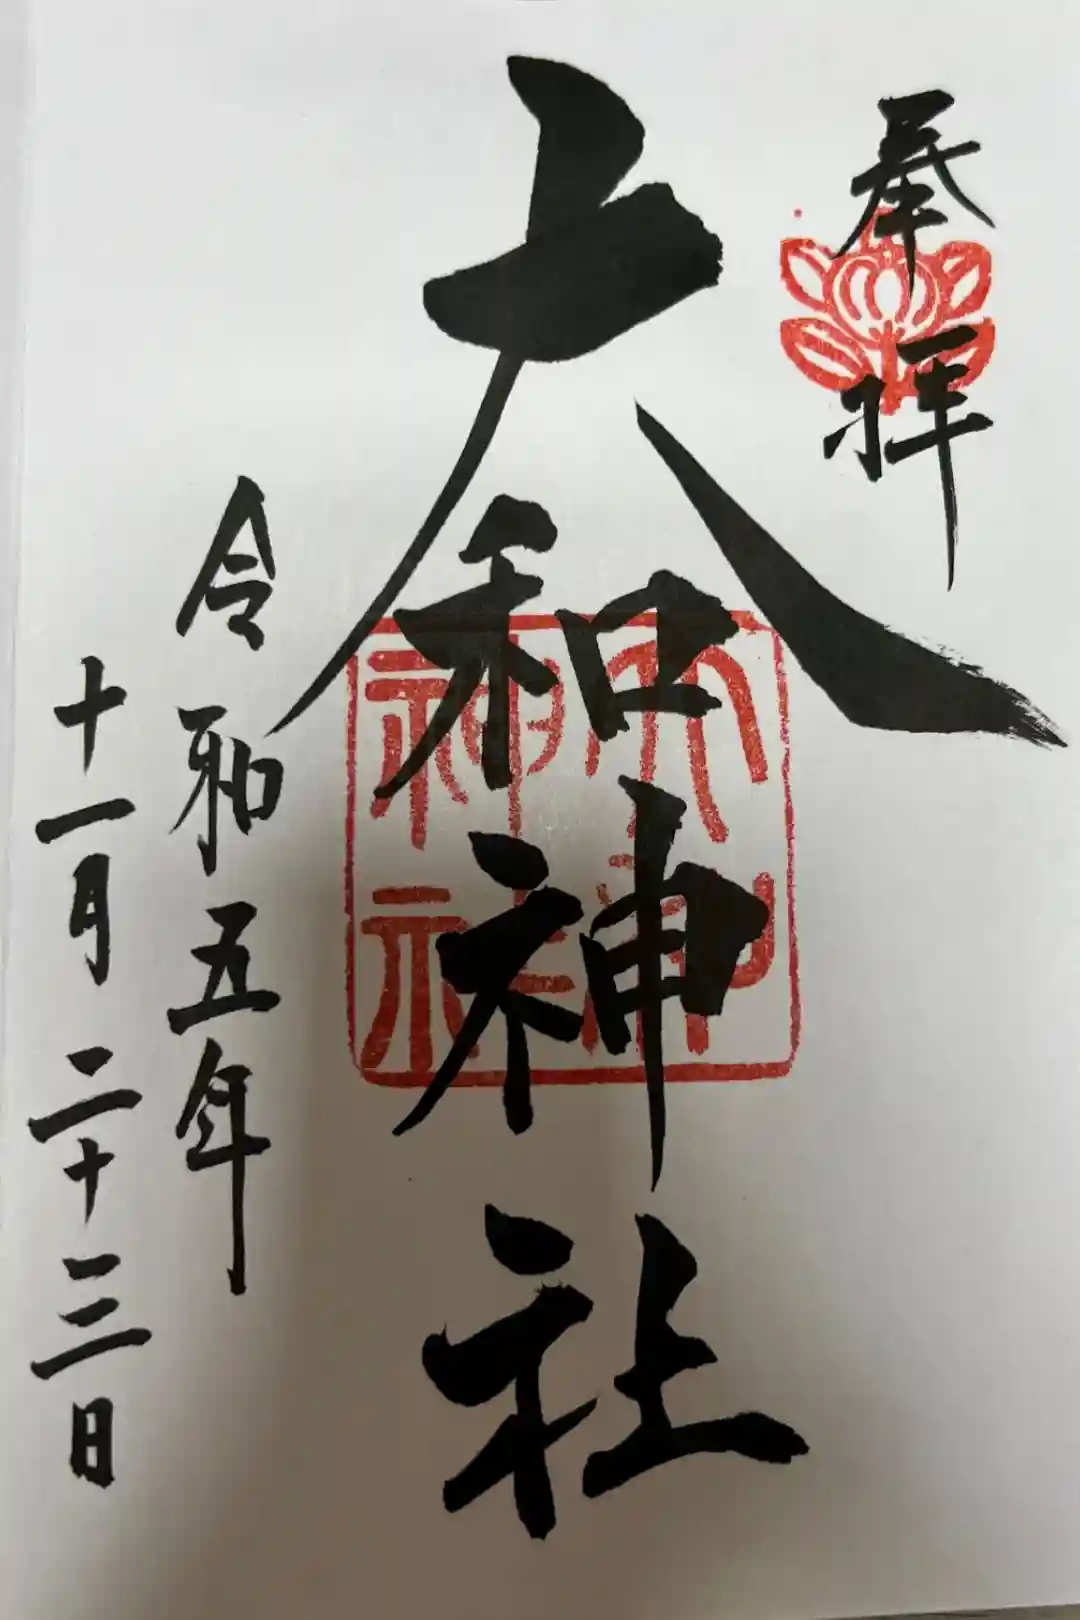 奉拝
大和神社
大和神社
令和五年
十一月二十三日